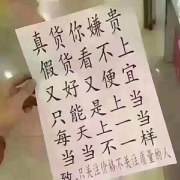 真货你嫌贵
假货看不上
又好又便宜
只能是上当
每天上一当
当当不一样
致:只关注价格不关注质量的人